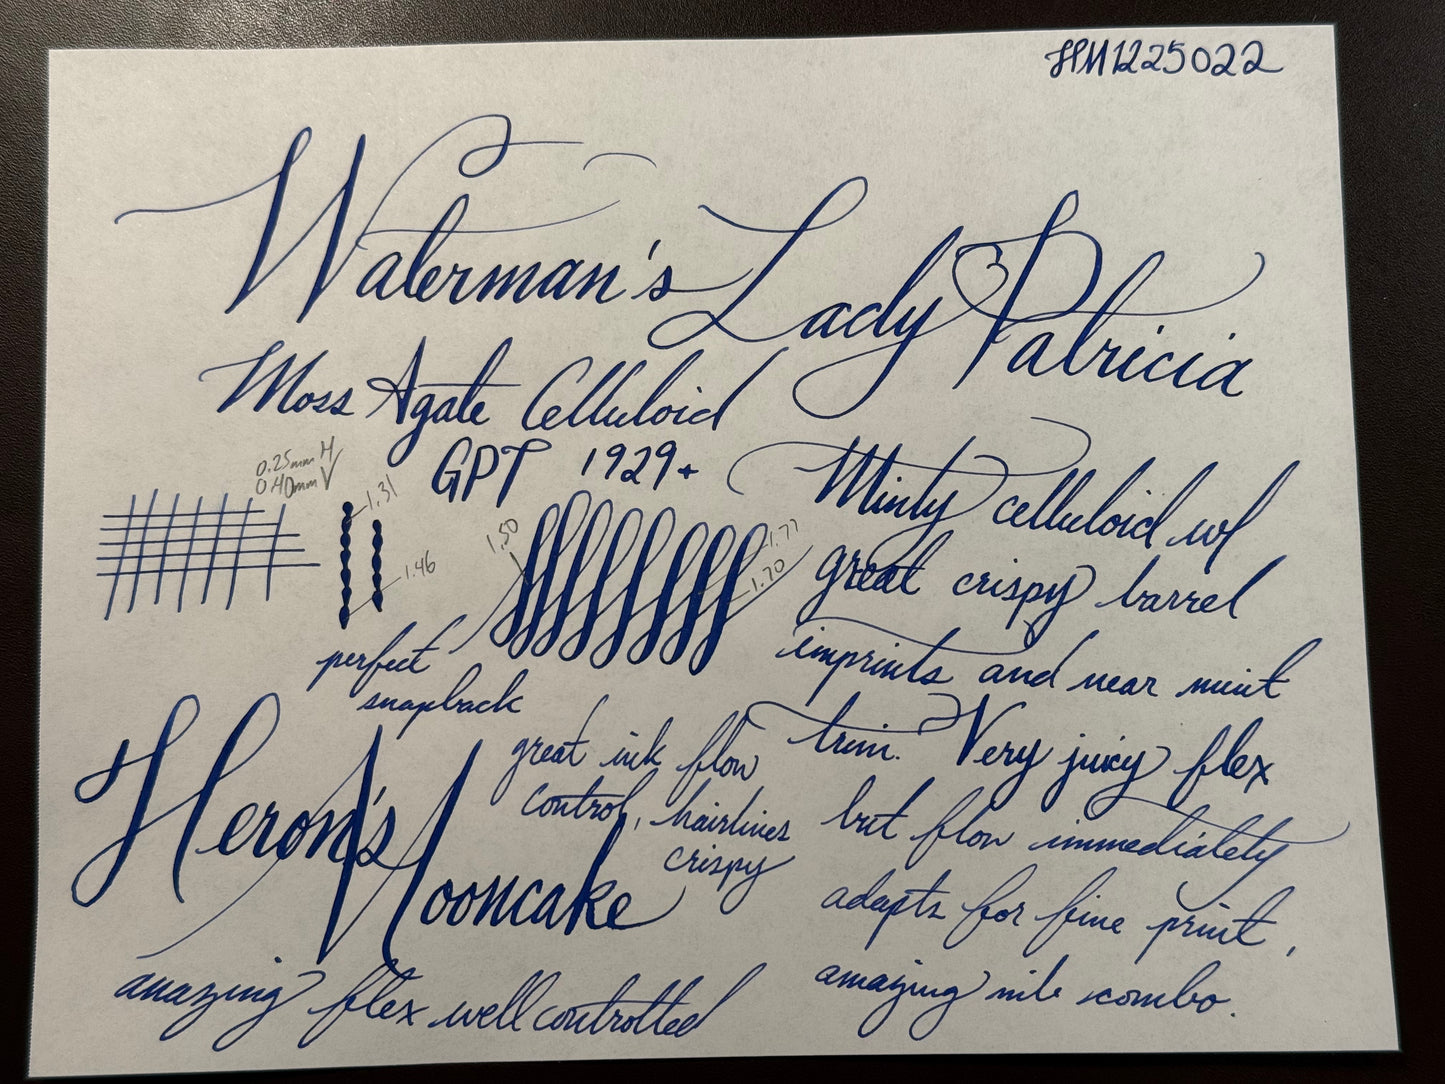 HM1225022
Waterman's Lady Patricia
Moss Agate Celluloid
GPT 1929+
0.25mm H
0.40mm V
1.31
1.46
1.50
1.77
1.70
perfect
snapback
great ink flow
control, hairlines
crispy
Minty celluloid w/
great crispy barrel
imprints and near mint
trim. Very juicy flex
but flow immediately
adapts for fine print,
amazing nib combo.
Heron's
Mooncake
amazing flex well controlled